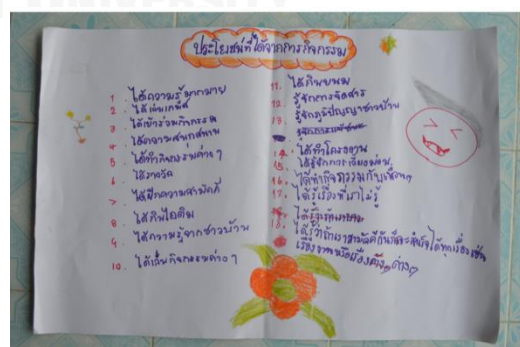 ประโยชน์ที่ได้จากการทำกิจกรรม
1. ได้ความรู้มากมาย
2. ได้เล่นเกมส์
3. ได้เข้าร่วมกิจกรรม
4. ได้ความสนุกสนาน
5. ได้ทำกิจกรรมต่าง ๆ
6. ได้รางวัล
7. ได้ฝึกความสามัคคี
8. ได้กินไอติม
9. ได้ความรู้จากชาวบ้าน
10. ได้เห็นกิจกรรมต่าง ๆ
11. ได้กินขนม
12. รู้จักการจัดสาร
13. รู้จักภูมิปัญญาชาวบ้าน
14. ได้ทำโครงงาน
15. ได้รู้จักการ
16. ได้ทำกิจกรรมกับเพื่อนๆ
17. ได้รู้เรื่องที่เราไม่รู้
18. ได้รู้ว่าถ้าเราสามัคคีกันก็จะสำเร็จได้ทุกเรื่องเช่น
เรื่องงานหรือเรื่องต่างๆ